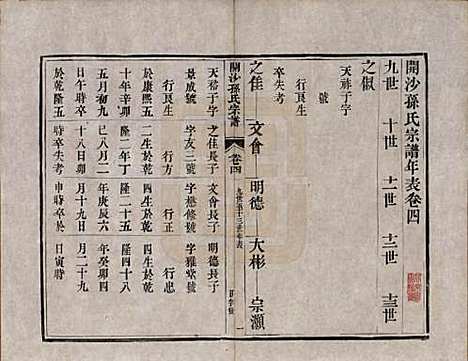 開沙孫氏宗譜年表卷四
九世 十世 十一世 十二世 十三世
之俶
天祐子字
號
行艮生
卒失考
之佳 文會 明德 大彬 宗灝
開沙孫氏宗譜 卷四 九世至十三世年表 一
天裕子字 之佳長子 文會長子 明德長子
景成號 字友三號 字懋修號 字雅堂號
行艮生 行方 行正 行忠
於康熙五 生於乾 生於乾 生於乾
十年辛卯 隆二年丁 隆二十五 隆四十八
五月初九 巳八月二 年庚辰六 年癸卯四
日時卒 十日 月十九日 月二十九
於乾隆五 時卒失考 申時卒於 日寅時